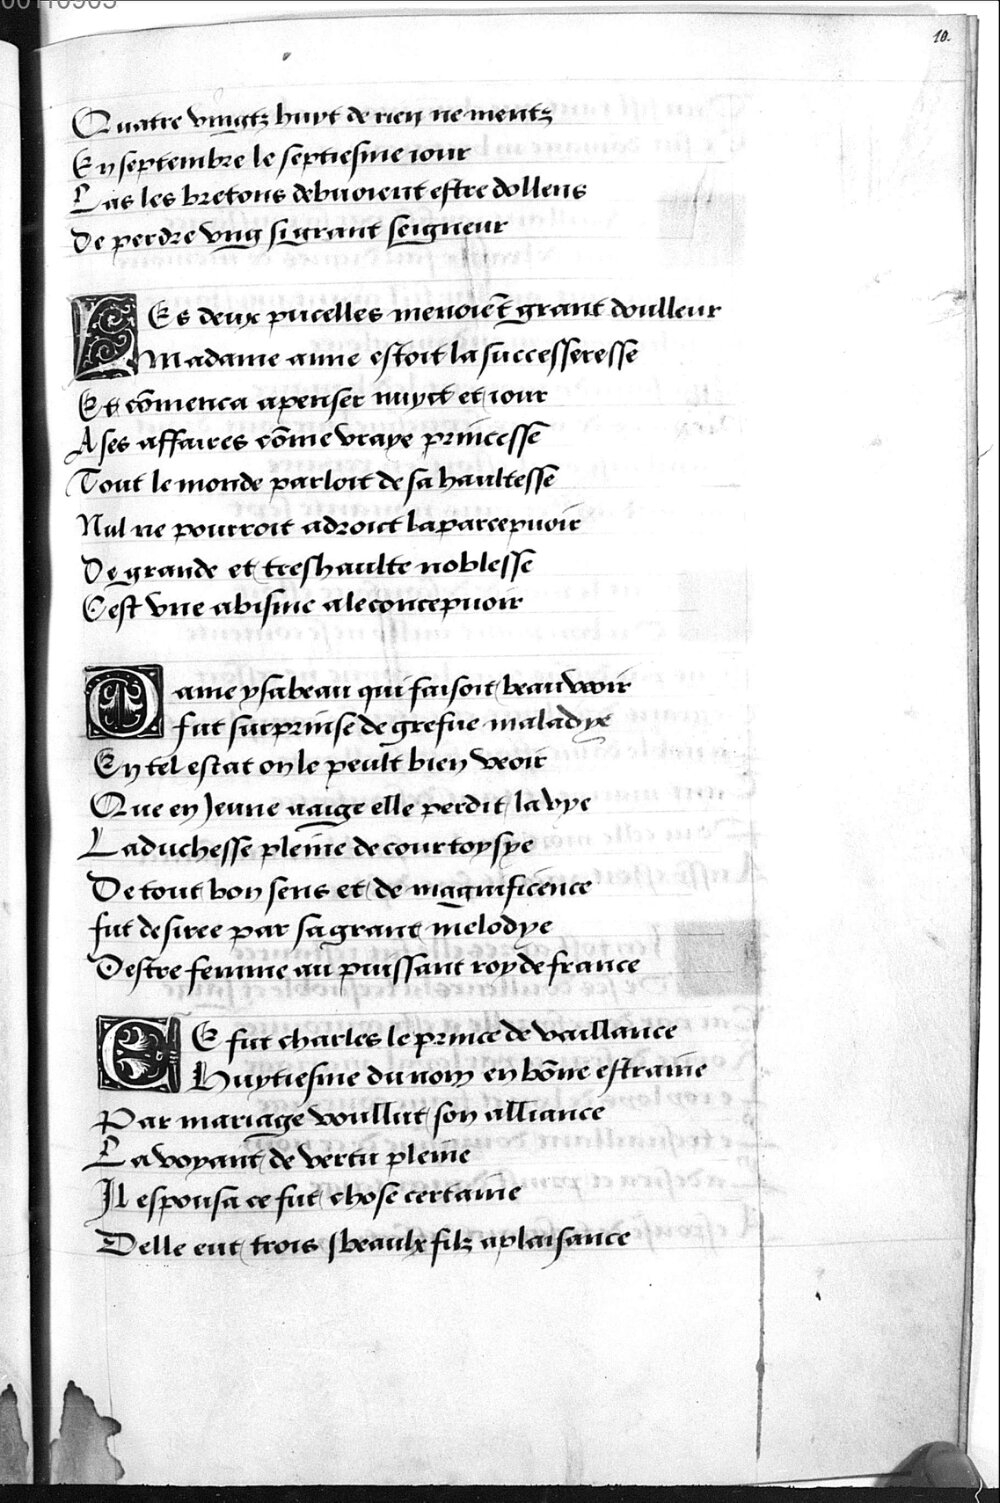 00110905
10.
Quatre vingtz huyt de rien ne mentz
En septembre le septiesme iour
Las les bretons debuoient estre dollens
De perdre vng si grant seigneur
LEs deux pucelles menoiēt grant doulleur
Madame anne estoit la successeresse
Et cōmenca a penser nuyct et iour
A ses affaires cōme vraye princesse
Tout le monde parloit de sa haultesse
Nul ne pourroit adroict laparcepuoir
De grande et treshaulte noblesse
Cest vne abisme a le concepuoir
Dame ysabeau qui faisoit beau veoir
fut surprinse de grefue maladye
En tel estat on le peult bien veoir
Que en Jeune aaige elle perdit la vye
La duchesse pleine de courtoysye
De tout bon sens et de magnificence
fut desiree par sa grant melodye
Destre femme au puissant roy de france
CE fut charles le prince de vaillance
Huytiesme du nom en bōne estraine
Par mariage voullut son alliance
La voyant de vertu pleine
Il espousa ce fut chose certaine
Delle eut trois beaulx filz a plaisance